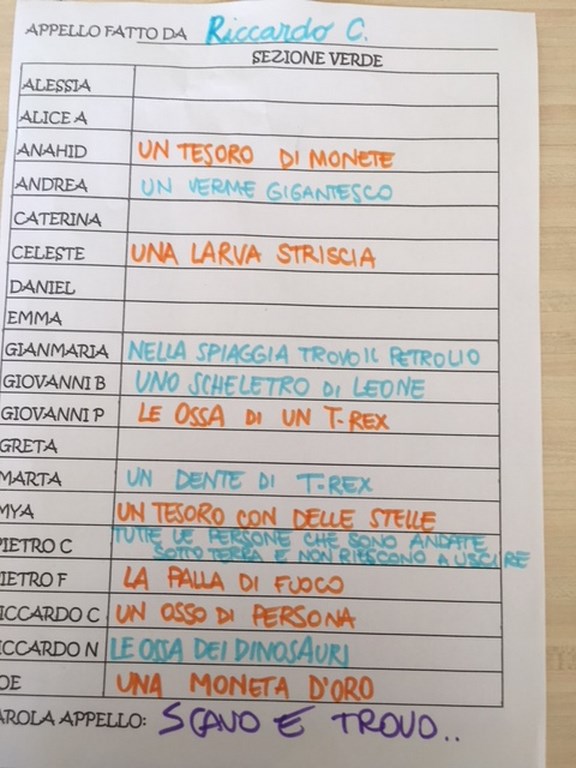 APPELLO FATTO DA Riccardo C.
SEZIONE VERDE
ALESSIA
ALICE A
ANAHID UN TESORO DI MONETE
ANDREA UN VERME GIGANTESCO
CATERINA
CELESTE UNA LARVA STRISCIA
DANIEL
EMMA
GIANMARIA NELLA SPIAGGIA TROVO IL PETROLIO
GIOVANNI B UNO SCHELETRO DI LEONE
GIOVANNI P LE OSSA DI UN T-REX
GRETA
MARTA UN DENTE DI T-REX
MYA UN TESORO CON DELLE STELLE
PIETRO C TUTTE LE PERSONE CHE SONO ANDATE
SOTTO TERRA E NON RIESCONO A USCIRE
IETRO F LA PALLA DI FUOCO
ICCARDO C UN OSSO DI PERSONA
ICCARDO N LE OSSA DEI DINOSAURI
OE UNA MONETA D'ORO
AROLA APPELLO: SCAVO E TROVO..